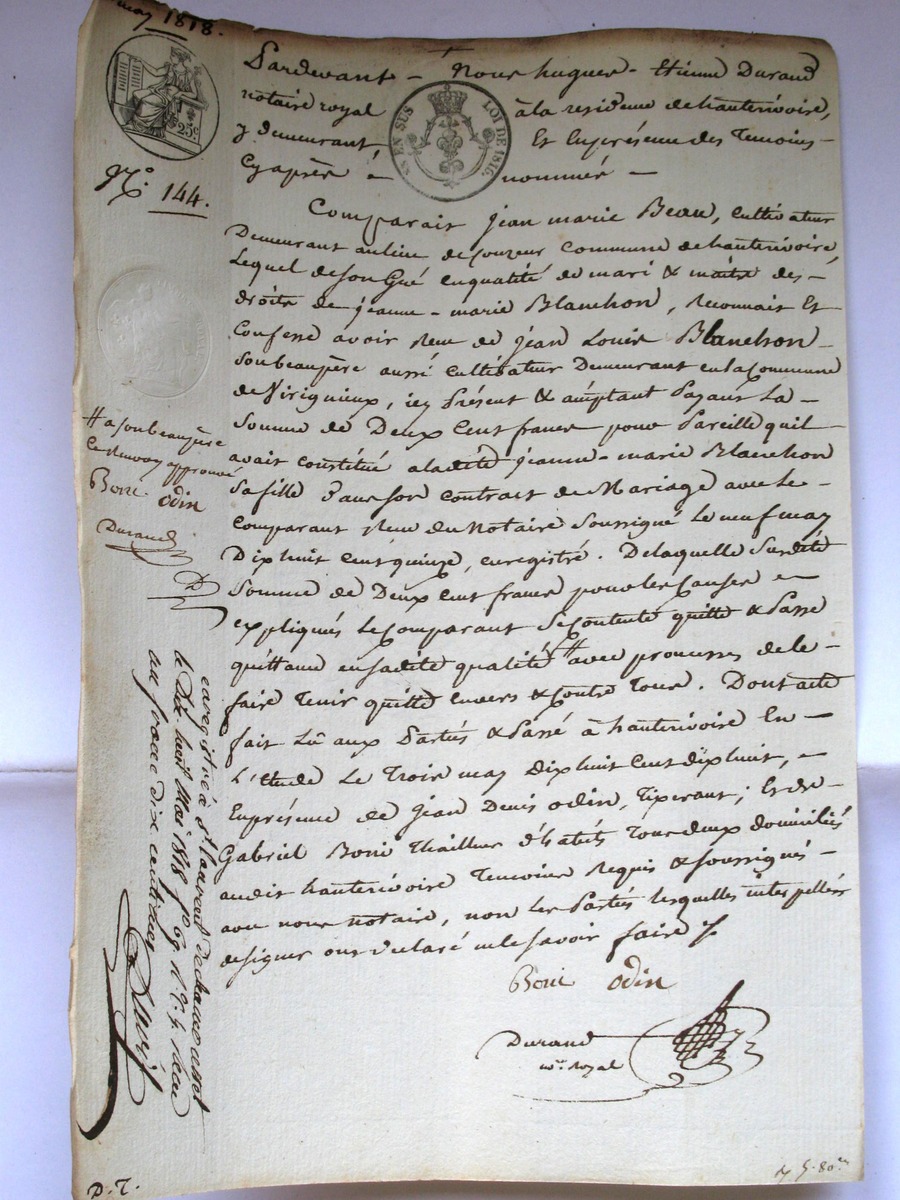 may 1818.
25c
EN SUS LOI DE 1816
No. 144.
Pardevant – Nous hugues – Etienne Durand
notaire royal à la residence de hauterivoire,
y demeurant Et Enpresence des Temoins –
Cyaprès à nommés –
Comparait Jean marie Beau, cultivateur
Demeurant aulieu de Souzeux Commune de hauterivoire,
Lequel de son Gué enqualité de mari & maitre des –
droits de jeanne – marie Blanchon, reconnait Et
Confesse avoir reçu de jean Louis Blanchon –
Sonbeaupère aussi cultivateur Demeurant en la Commune
de Virignieux, icy présent & acceptant payant La –
Somme de Deux Cent francs pour Pareille quil –
avait constitué aladite jeanne – marie Blanchon
Safille Dans son contrat de Mariage avec Le –
Comparant reçu du Notaire Soussigné Le neuf may
Dixhuit cent quinze, enregistré. Delaquelle Susdite
Somme de Deux Cent francs pour les Causes –
expliqués Le Comparant Se Contente quitte & Passe
quittance ensadite qualité # avec promesses de le –
faire Tenir quitte envers & Contre Tous. Dont acte
fait Lû aux Parties & Passé à hauterivoire En –
L'etude Le Trois may Dixhuit Cent dixhuit, –
Enpresence de Jean Denis odin, Tixerant; Et de –
Gabriel Boni Thailleur d'habits Tous deux domiciliés
audit hauterivoire Temoins Requis & Soussignés –
avec nous notaire, non les Parties lesquelles interpellées
designer ont declaré nele Savoir faire
Boni odin
Durand
nre. royal
# a sonbeaupère
Ce renvoy approuvé
Boni odin
Durand
D
enregistré à St laurent de chamousset
le dix huit Mai 1818 fo 69
un franc dix centimes
D. T.